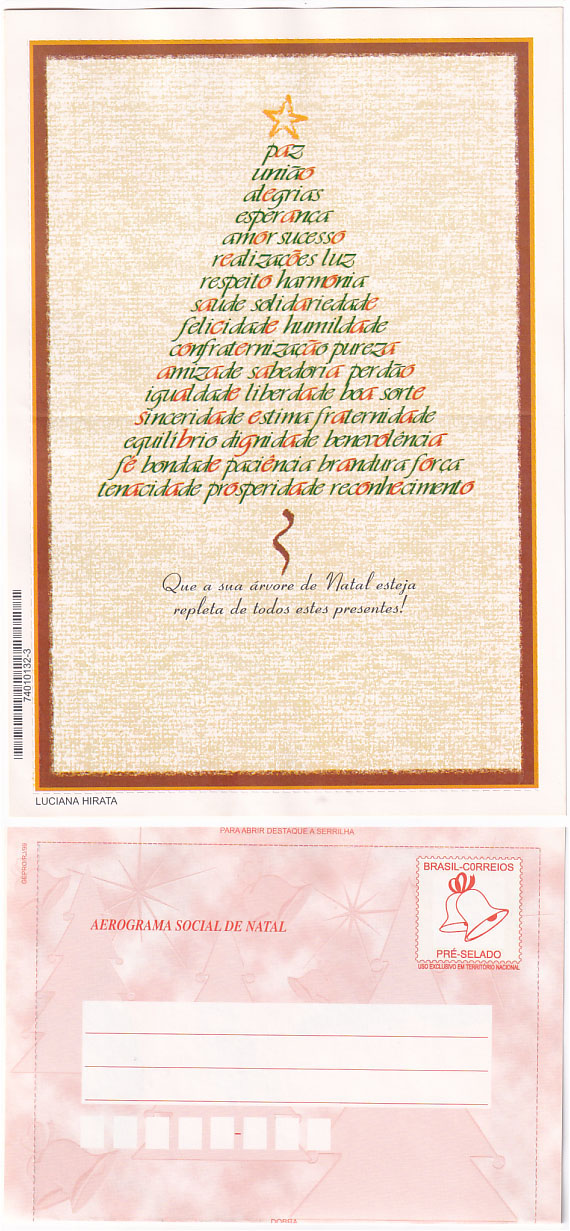 paz
união
alegrias
esperança
amor sucesso
realizações luz
respeito harmonia
saúde solidariedade
felicidade humildade
confraternização pureza
amizade sabedoria perdão
igualdade liberdade boa sorte
sinceridade estima fraternidade
equilíbrio dignidade benevolência
fé bondade paciência brandura força
tenacidade prosperidade reconhecimento
Que a sua árvore de Natal esteja
repleta de todos estes presentes!
74010132-3
LUCIANA HIRATA
PARA ABRIR DESTAQUE A SERRILHA
BRASIL-CORREIOS
AEROGRAMA SOCIAL DE NATAL
PRÉ-SELADO
USO EXCLUSIVO EM TERRITÓRIO NACIONAL
DOBRA